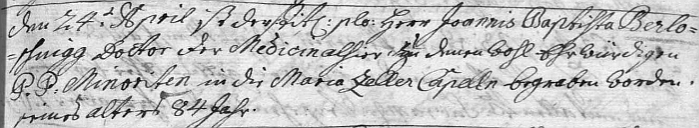 den 24t April ist der titl: plo: Herr Joannis Baptista Berlo=
=shnigg Doctor der Medicin alhier Zu denen wohl Ehrwürdigen
P. P. Minoriten in die Maria Zeller Capeln begraben worden.
seines alters 84 Jahr.